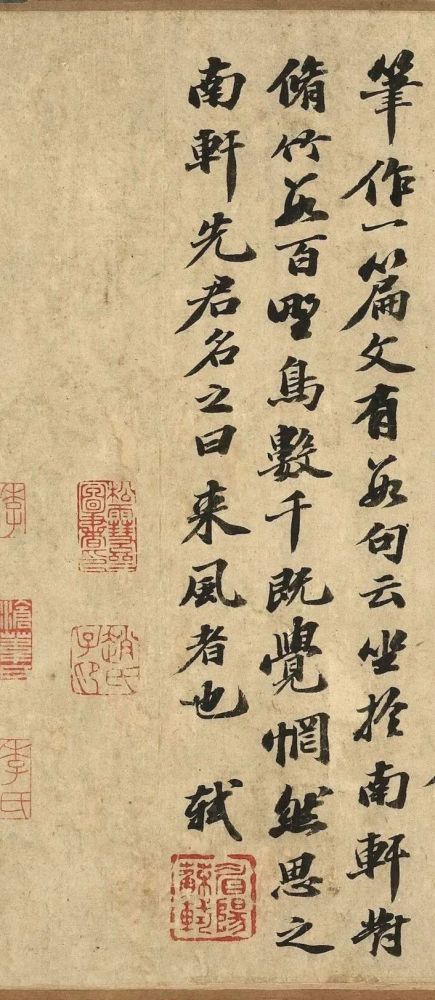 筆作一篇文有數句云坐於南軒對
脩竹數百野鳥數千既覺惘然思之
南軒先君名之曰来風者也 軾
眉陽蘇軾
趙氏